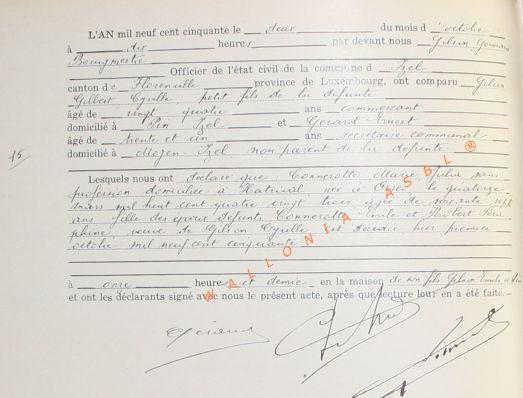 L'AN mil neuf cent cinquante le deux du mois d'octobre
à dix heures par devant nous Gilson Germain
Bourgmestre
Officier de l'état civil de la commune d'Izel
canton de Florenville province de Luxembourg, ont comparu Gilson
Gilbert Cyrille petit fils de la défunte
âgé de vingt quatre ans commerçant
domicilié à Pin Izel et Gérard Ernest
âgé de trente et un ans secrétaire communal
domicilié à Moyen-Izel non parent de la défunte
15
Lesquels nous ont déclaré que Connerotte Marie Julie sans
profession domiciliée à née à le quatorze
mars mil huit cent quatre vingt trois âgée de soixante sept
ans fille des époux défunts Connerotte Emile et
phine, veuve de Gilson Cyrille est décédée hier premier
octobre mil neuf cent cinquante
à onze heures et demie en la maison de son fils Gilson Emile
et ont les déclarants signé avec nous le présent acte, après que lecture leur en a été faite.-
WALLONIA ASBL ®
Gérard